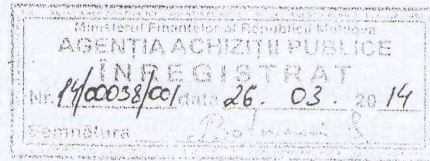 Ministerul Finanţelor al Republicii Moldova
AGENŢIA ACHIZIŢII PUBLICE
ÎNREGISTRAT
Nr. 14/00038/001 data 26. 03. 2014
Semnătura